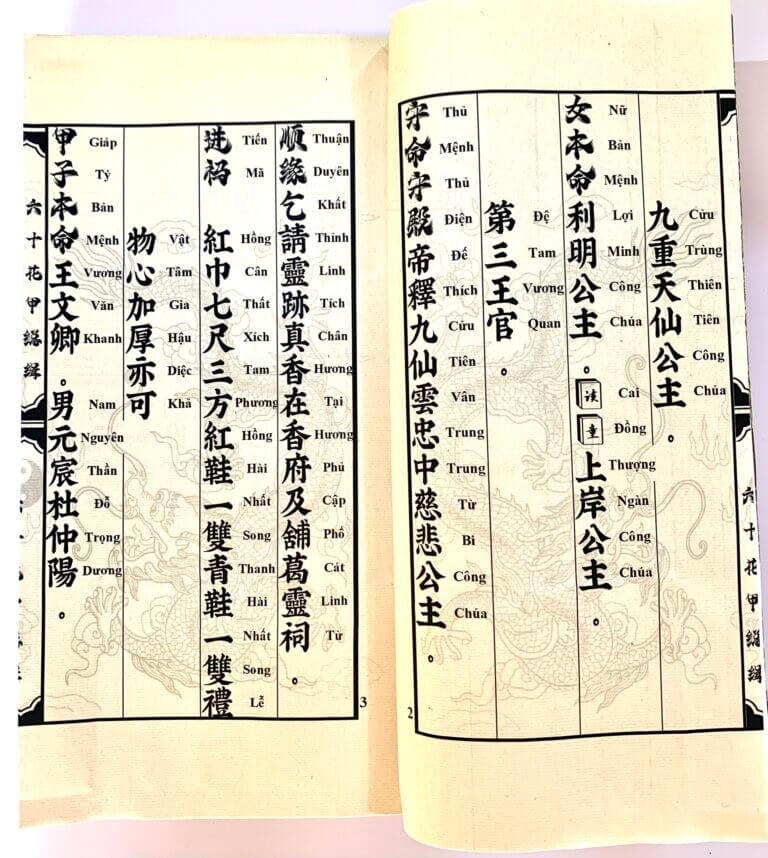 六十花甲縂緝
九重天仙公主。
Cửu Trùng Thiên Tiên Công Chúa
女本命利明公主。该童上岸公主。
Nữ Bản Mệnh Lợi Minh Công Chúa Cai Đồng Thượng Ngàn Công Chúa
第三王官。
Đệ Tam Vương Quan
守命守殿帝釋九仙雲忠中慈悲公主。
Thủ Mệnh Thủ Điện Đế Thích Cửu Tiên Vân Trung Trung Từ Bi Công Chúa
2
順緣乞請靈跡真香在香府及舖葛靈祠。
Thuận Duyên Khất Thỉnh Linh Tích Chân Hương Tại Hương Phủ Cập Phố Cát Linh Từ
进祃 紅巾七尺三方紅鞋一雙青鞋一雙禮
Tiến Mã Hồng Cân Thất Xích Tam Phương Hồng Hài Nhất Song Thanh Hài Nhất Song Lễ
物心加厚亦可
Vật Tâm Gia Hậu Diệc Khả
甲子本命王文卿。男元宸杜仲陽。
Giáp Tý Bản Mệnh Vương Văn Khanh Nam Nguyên Thần Đỗ Trọng Dương
3
六十花甲縂緝